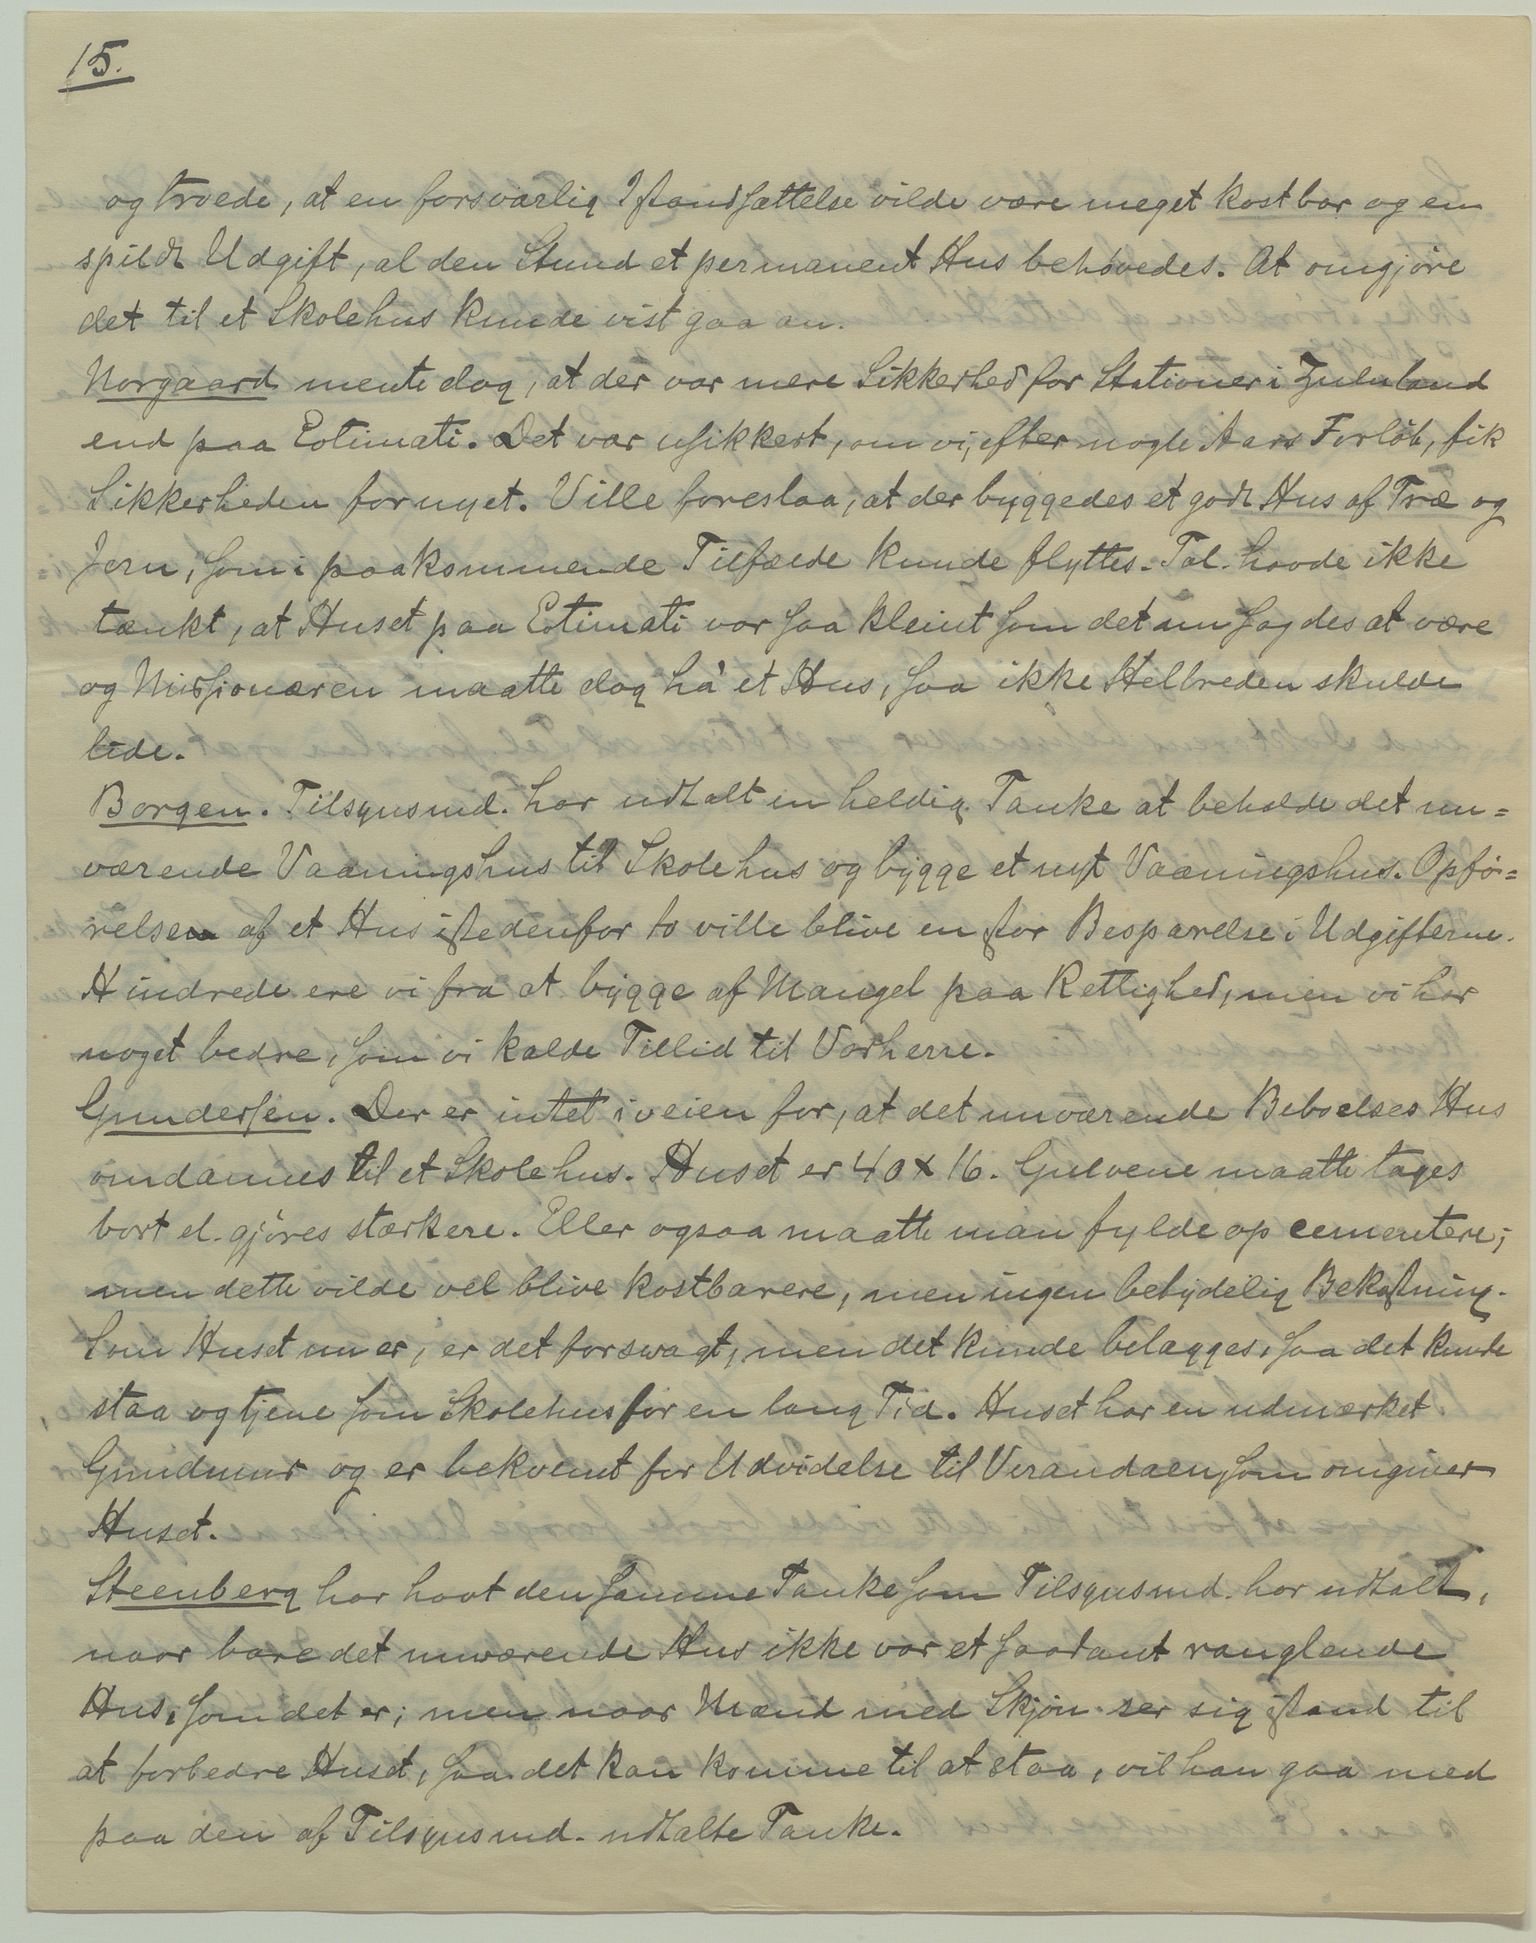 15.
og troede, at en forsvarlig Istandsættelse vilde være meget kostbar og en
spildt Udgift, al den Stund et permanent Hus behøvedes. At omgjøre
det til et Skolehus kunde vist gaa an.
Norgaard mente dog, at der var mere Sikkerhed for Stationer i Zululand
end paa Eotimati. Det var usikkert, om vi, efter nogle Aars Forløb, fik
Sikkerheden fornyet. Ville foreslaa, at der byggedes et godt Hus af Træ og
Jern, som i paakommende Tilfælde kunde flyttes. Tal. havde ikke
tænkt, at Huset paa Eotimati var saa kleint som det nu sagdes at være
og Missionæren maatte dog ha et Hus, saa ikke Helbreden skulde
lide.
Borgen. Tilsynsmd. har udtalt en heldig Tanke at beholde det nu=
værende Vaaningshus til Skolehus og bygge et nyt Vaaningshus. Opfø=
relsen af et Hus istedenfor to ville blive en stor Besparelse i Udgifterne.
Hindrede ere vi fra at bygge af Mangel paa Rettighed, men vi har
noget bedre, som vi kalde Tillid til Vorherre.
Gundersen. Der er intet iveien for, at det nuværende Beboelses Hus
omdannes til et Skolehus. Huset er 40 x 16. Gulvene maatte tages
bort el. gjøres stærkere. Eller ogsaa maatte man fylde op cementere;
men dette vilde vel blive kostbarere, men ingen betydelig Bekostning.
Som Huset nu er, er det for svagt, men det kunde belægges, saa det kunde
staa og tjene som Skolehus for en lang Tid. Huset har en udmærket
Grundmur og er bekvemt for Udvidelse til Verandaen, som omgiver
Huset.
Steenberg har havt den samme Tanke som Tilsynsmd. har udtalt,
naar bare det nuværende Hus ikke var et saadant ranglende
Hus, som det er; men naar Mænd med Skjøn ser sig istand til
at forbedre Huset, saa det kan komme til at staa, vil han gaa med
paa den af Tilsynsmd. udtalte Tanke.